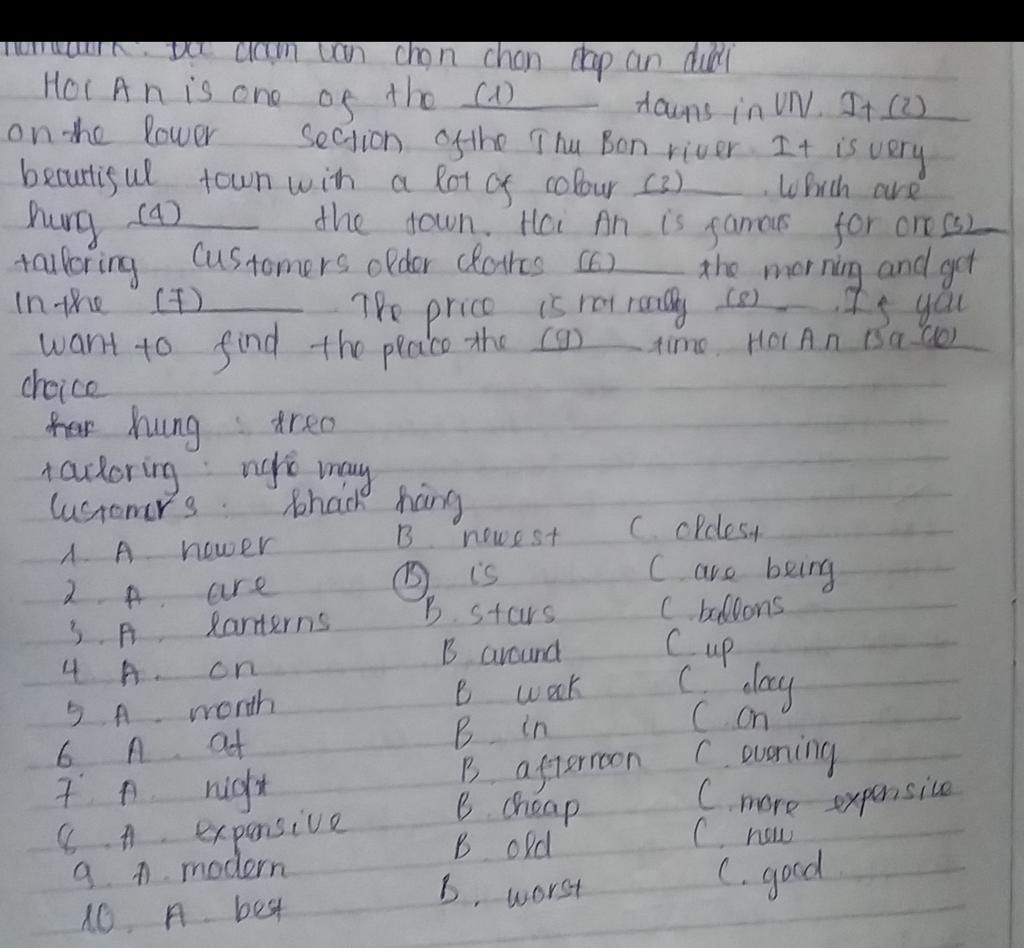 homework: Đọc đoạn văn chọn chọn đáp án dưới
Hoi An is one of the (1) ____ towns in VN. It (2) ____
on the lower section of the Thu Bon river. It is very
beautiful town with a lot of colour (3) ____. Which are
hung (4) ____ the town. Hoi An is famous for one (5) ____
tailoring Customers older clothes (6) ____ the morning and get
in the (7) ____. The price is not really (8) ____. If you
want to find the place the (9) ____ time. Hoi An is a (10) ____
choice
hung : treo
tailoring : nghề may
Customer's : khách hàng
1. A. newer B. newest C. oldest
2. A. are B. is C. are being
3. A. lanterns B. stars C. ballons
4 A. on B. around C. up
5 A. month B. week C. day
6 A. at B. in C. on
7. A. night B. afternoon C. evening
8. A. expensive B. cheap C. more expensive
9. A. modern B. old C. new
10. A. best B. worst C. good